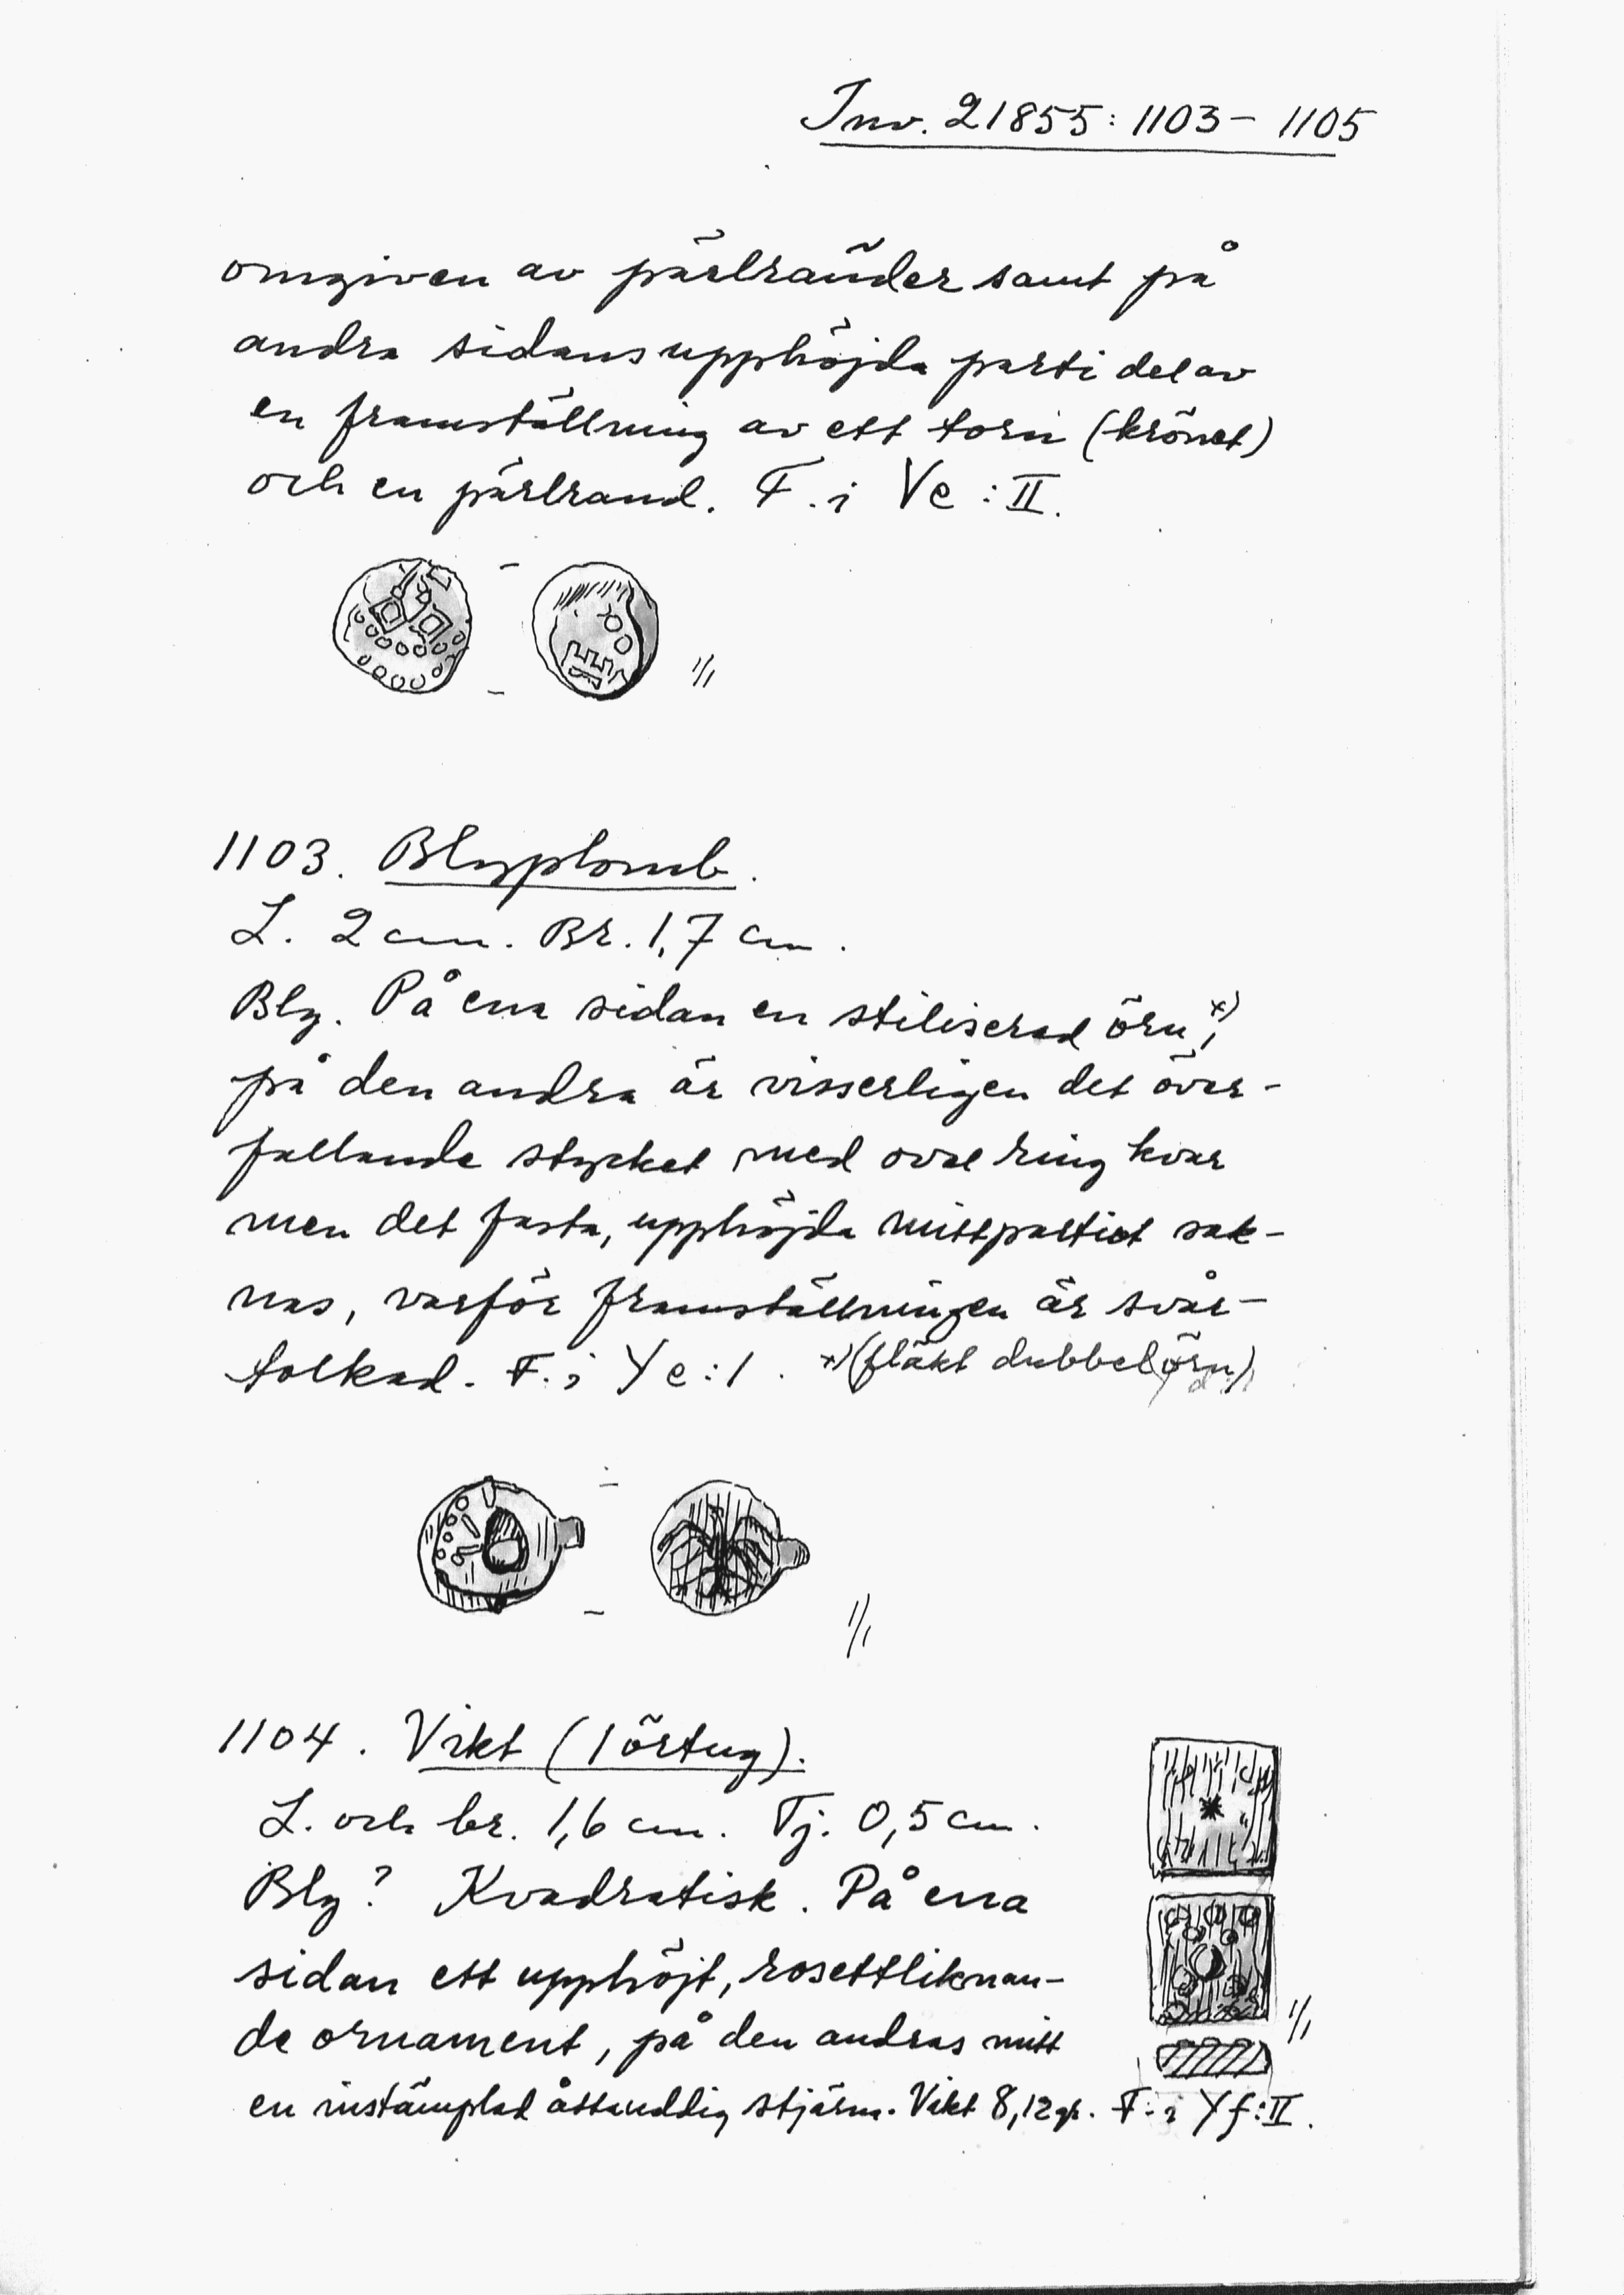 Inv. 21855: 1103– 1105
omgiven av pärlränder samt på
andra sidans upphöjda parti del av
en framställning av ett torn (krönet)
och en pärlrand. F. i Ve : II.
1/1
1103. Blyplomb.
L. 2 cm. Br. 1,7 cm.
Bly. På ena sidan en stiliserad örn x),
på den andra är visserligen det över-
fallande stycket med oval ring kvar
men det fasta, upphöjda mittpartiet sak-
nas, varför framställningen är svår-
tolkad. F. i Ye : 1. x) (fläkt dubbelörn)
1/1
1104. Vikt (1 örtug).
L. och br. 1,6 cm. Tj. 0,5 cm.
Bly? Kvadratisk. På ena
sidan ett upphöjt, rosettliknan-
de ornament, på den andras mitt
1/1
en instämplad åttauddig stjärna. Vikt 8,12 gr. F. i Yf : II.